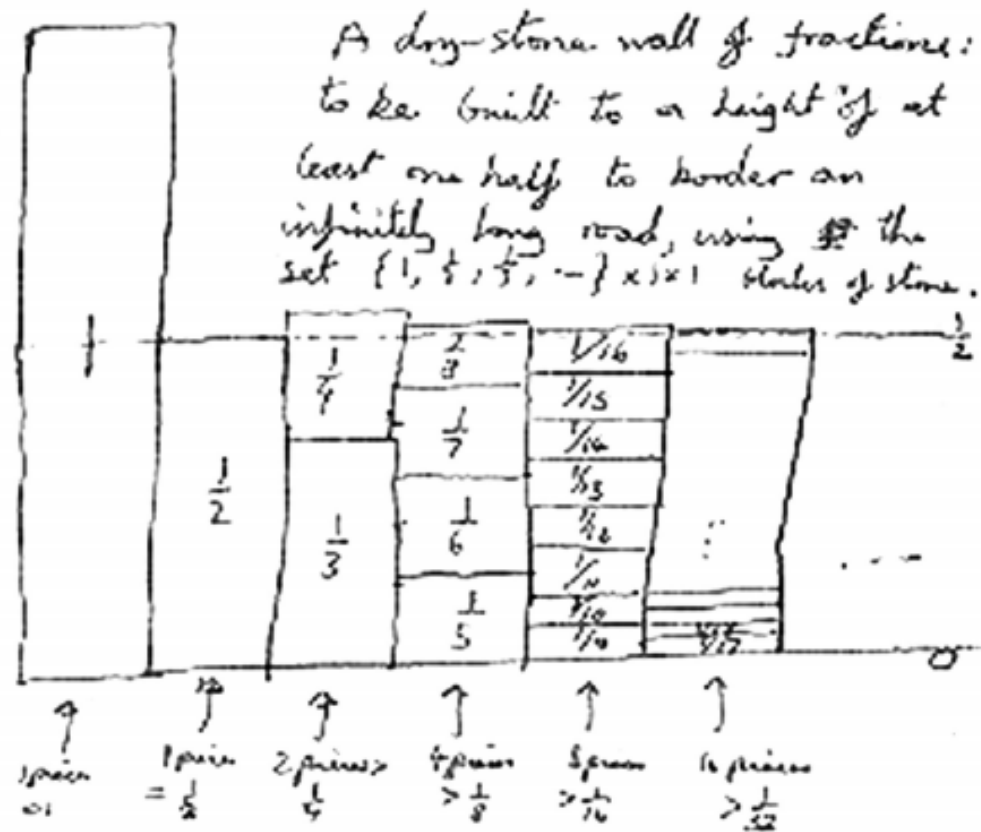 A dry-stone wall of fractions:
to be built to a height of at
least one half to border an
infinitely long road, using the
set {1, 1/2, 1/3, --} x 1 x 1 of stone.
1
1/2
1/4
1/3
1/7
1/6
1/5
1/16
1/15
1/14
1/13
1/12
1/11
1/10
1/17
1/2
0
1 piece
1 piece
= 1/2
2 pieces >
1/4
4 pieces
> 1/8
8 pieces
> 1/16
16 pieces
> 1/32